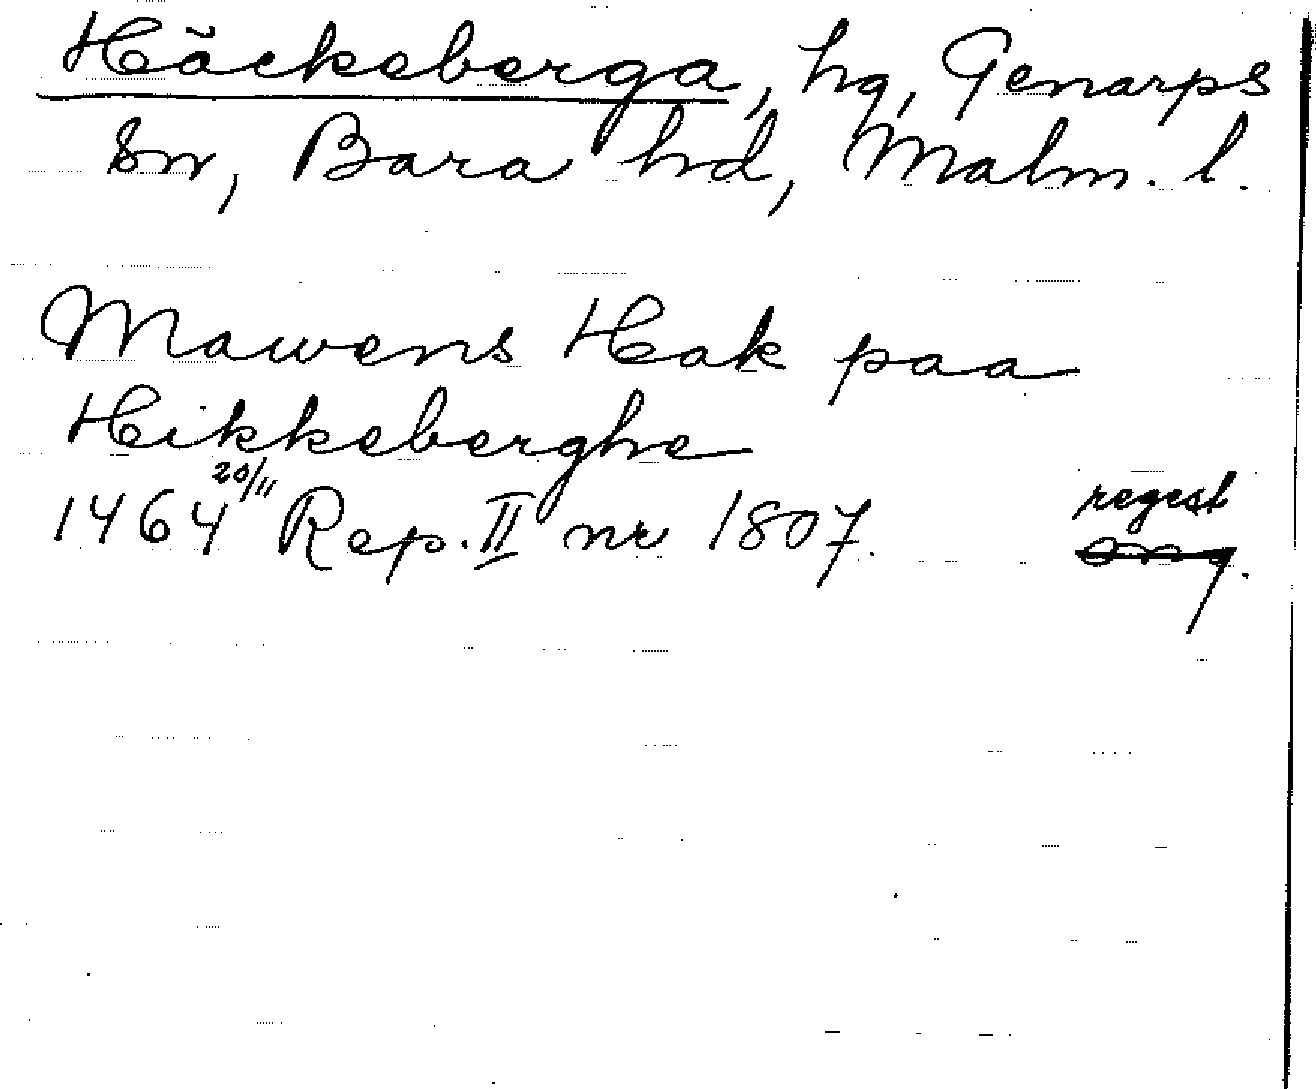 Häckeberga, hg, Genarps
sn, Bara hd, Malm. l.
Mawens Hak paa
Hikkeberghe
1464 20/11 Rep. II nr 1807.
regest